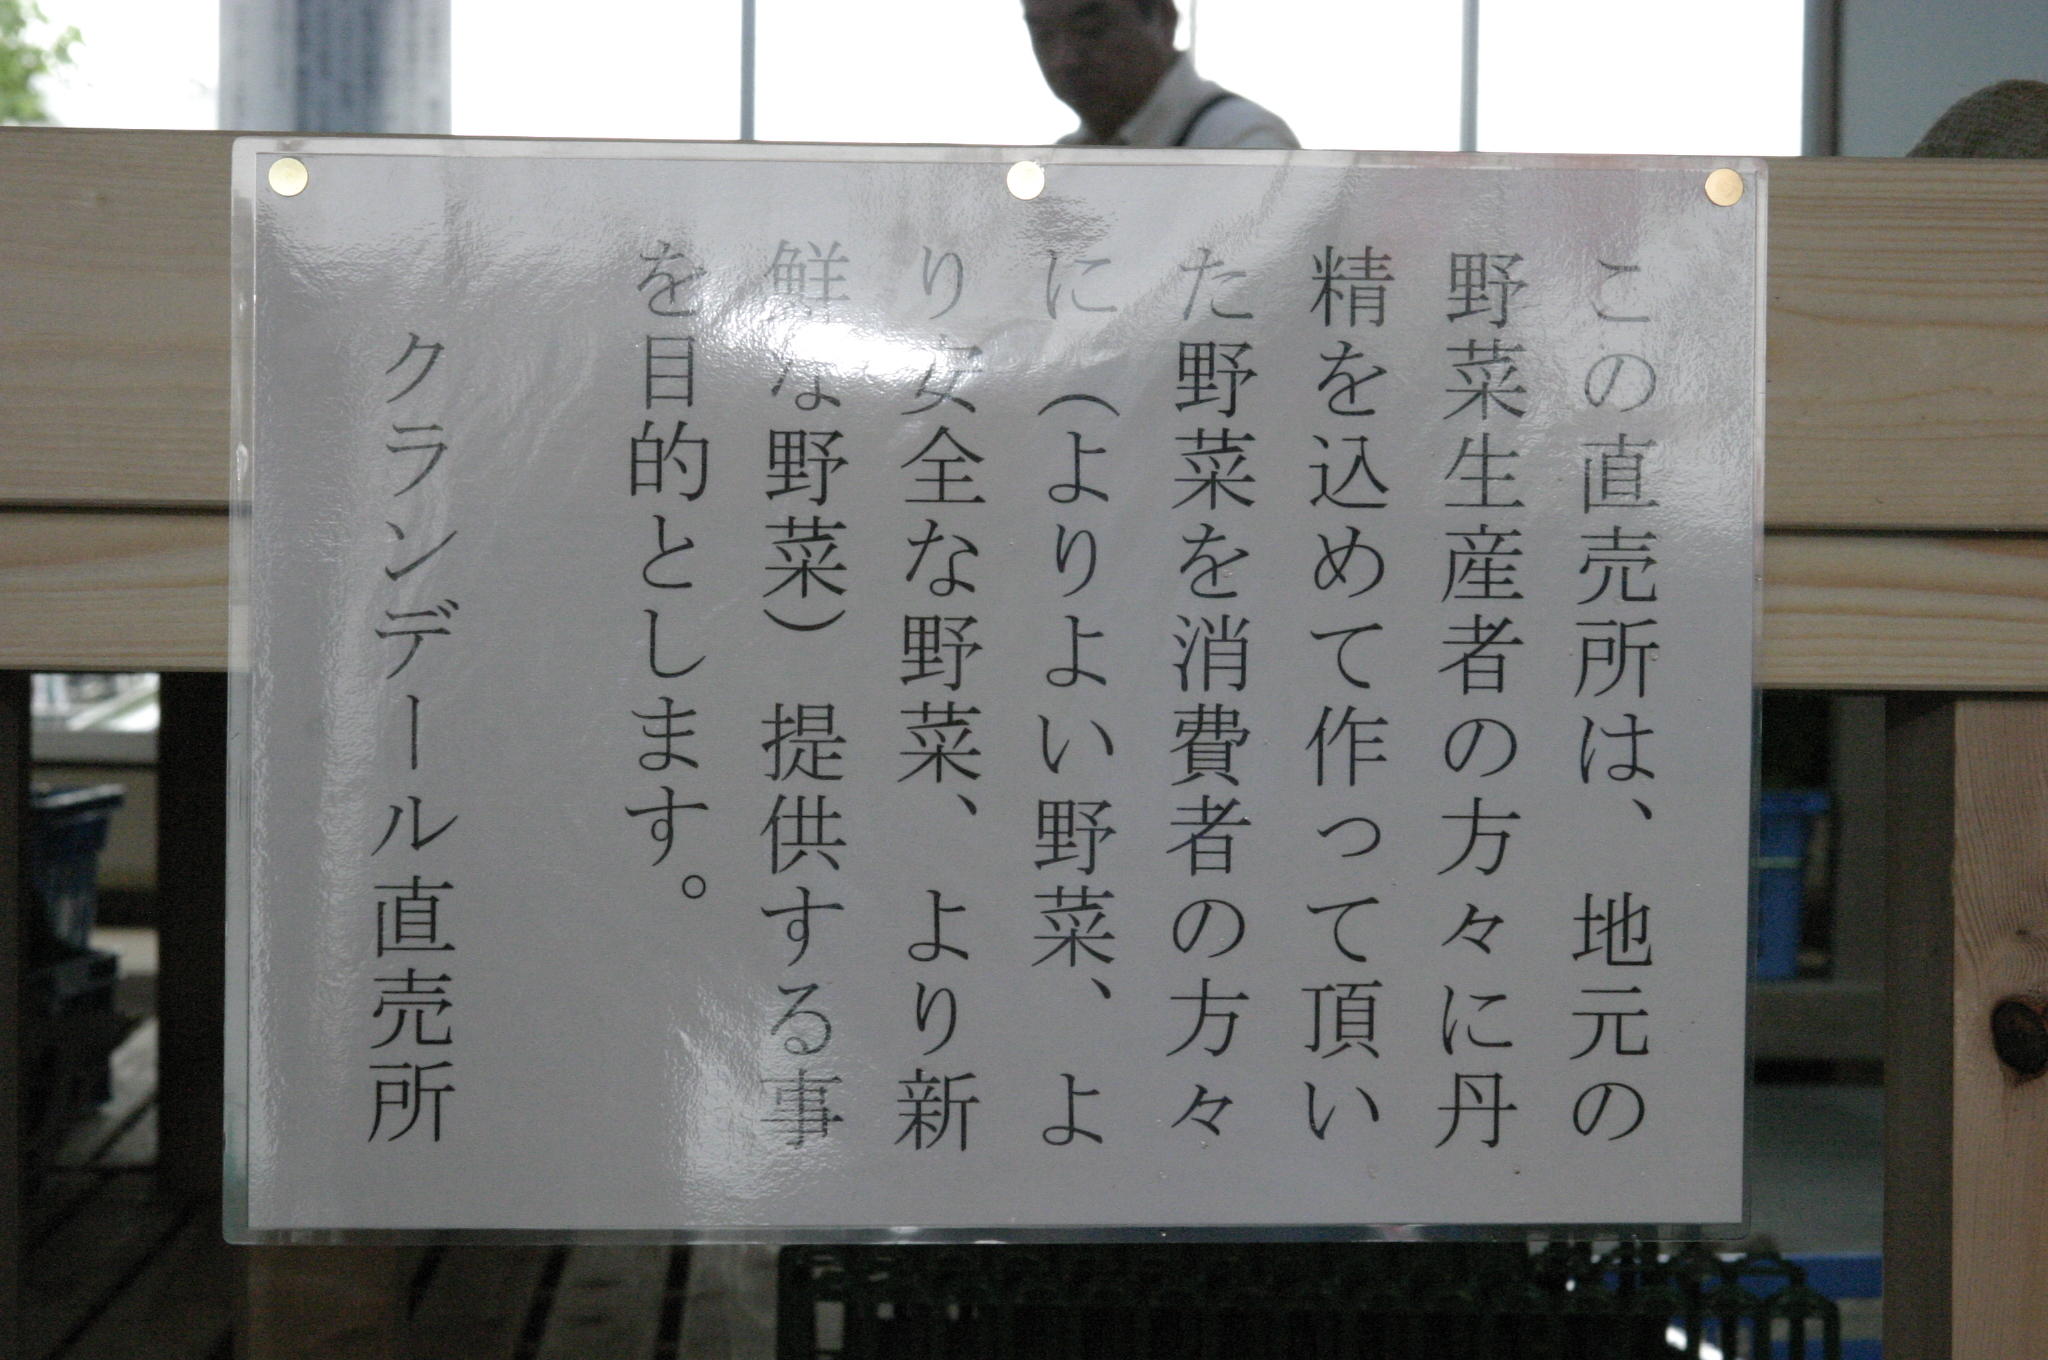 この直売所は、地元の
野菜生産者の方々に丹
精を込めて作って頂い
た野菜を消費者の方々
に（よりよい野菜、よ
り安全な野菜、より新
鮮な野菜）提供する事
を目的とします。
クランデール直売所